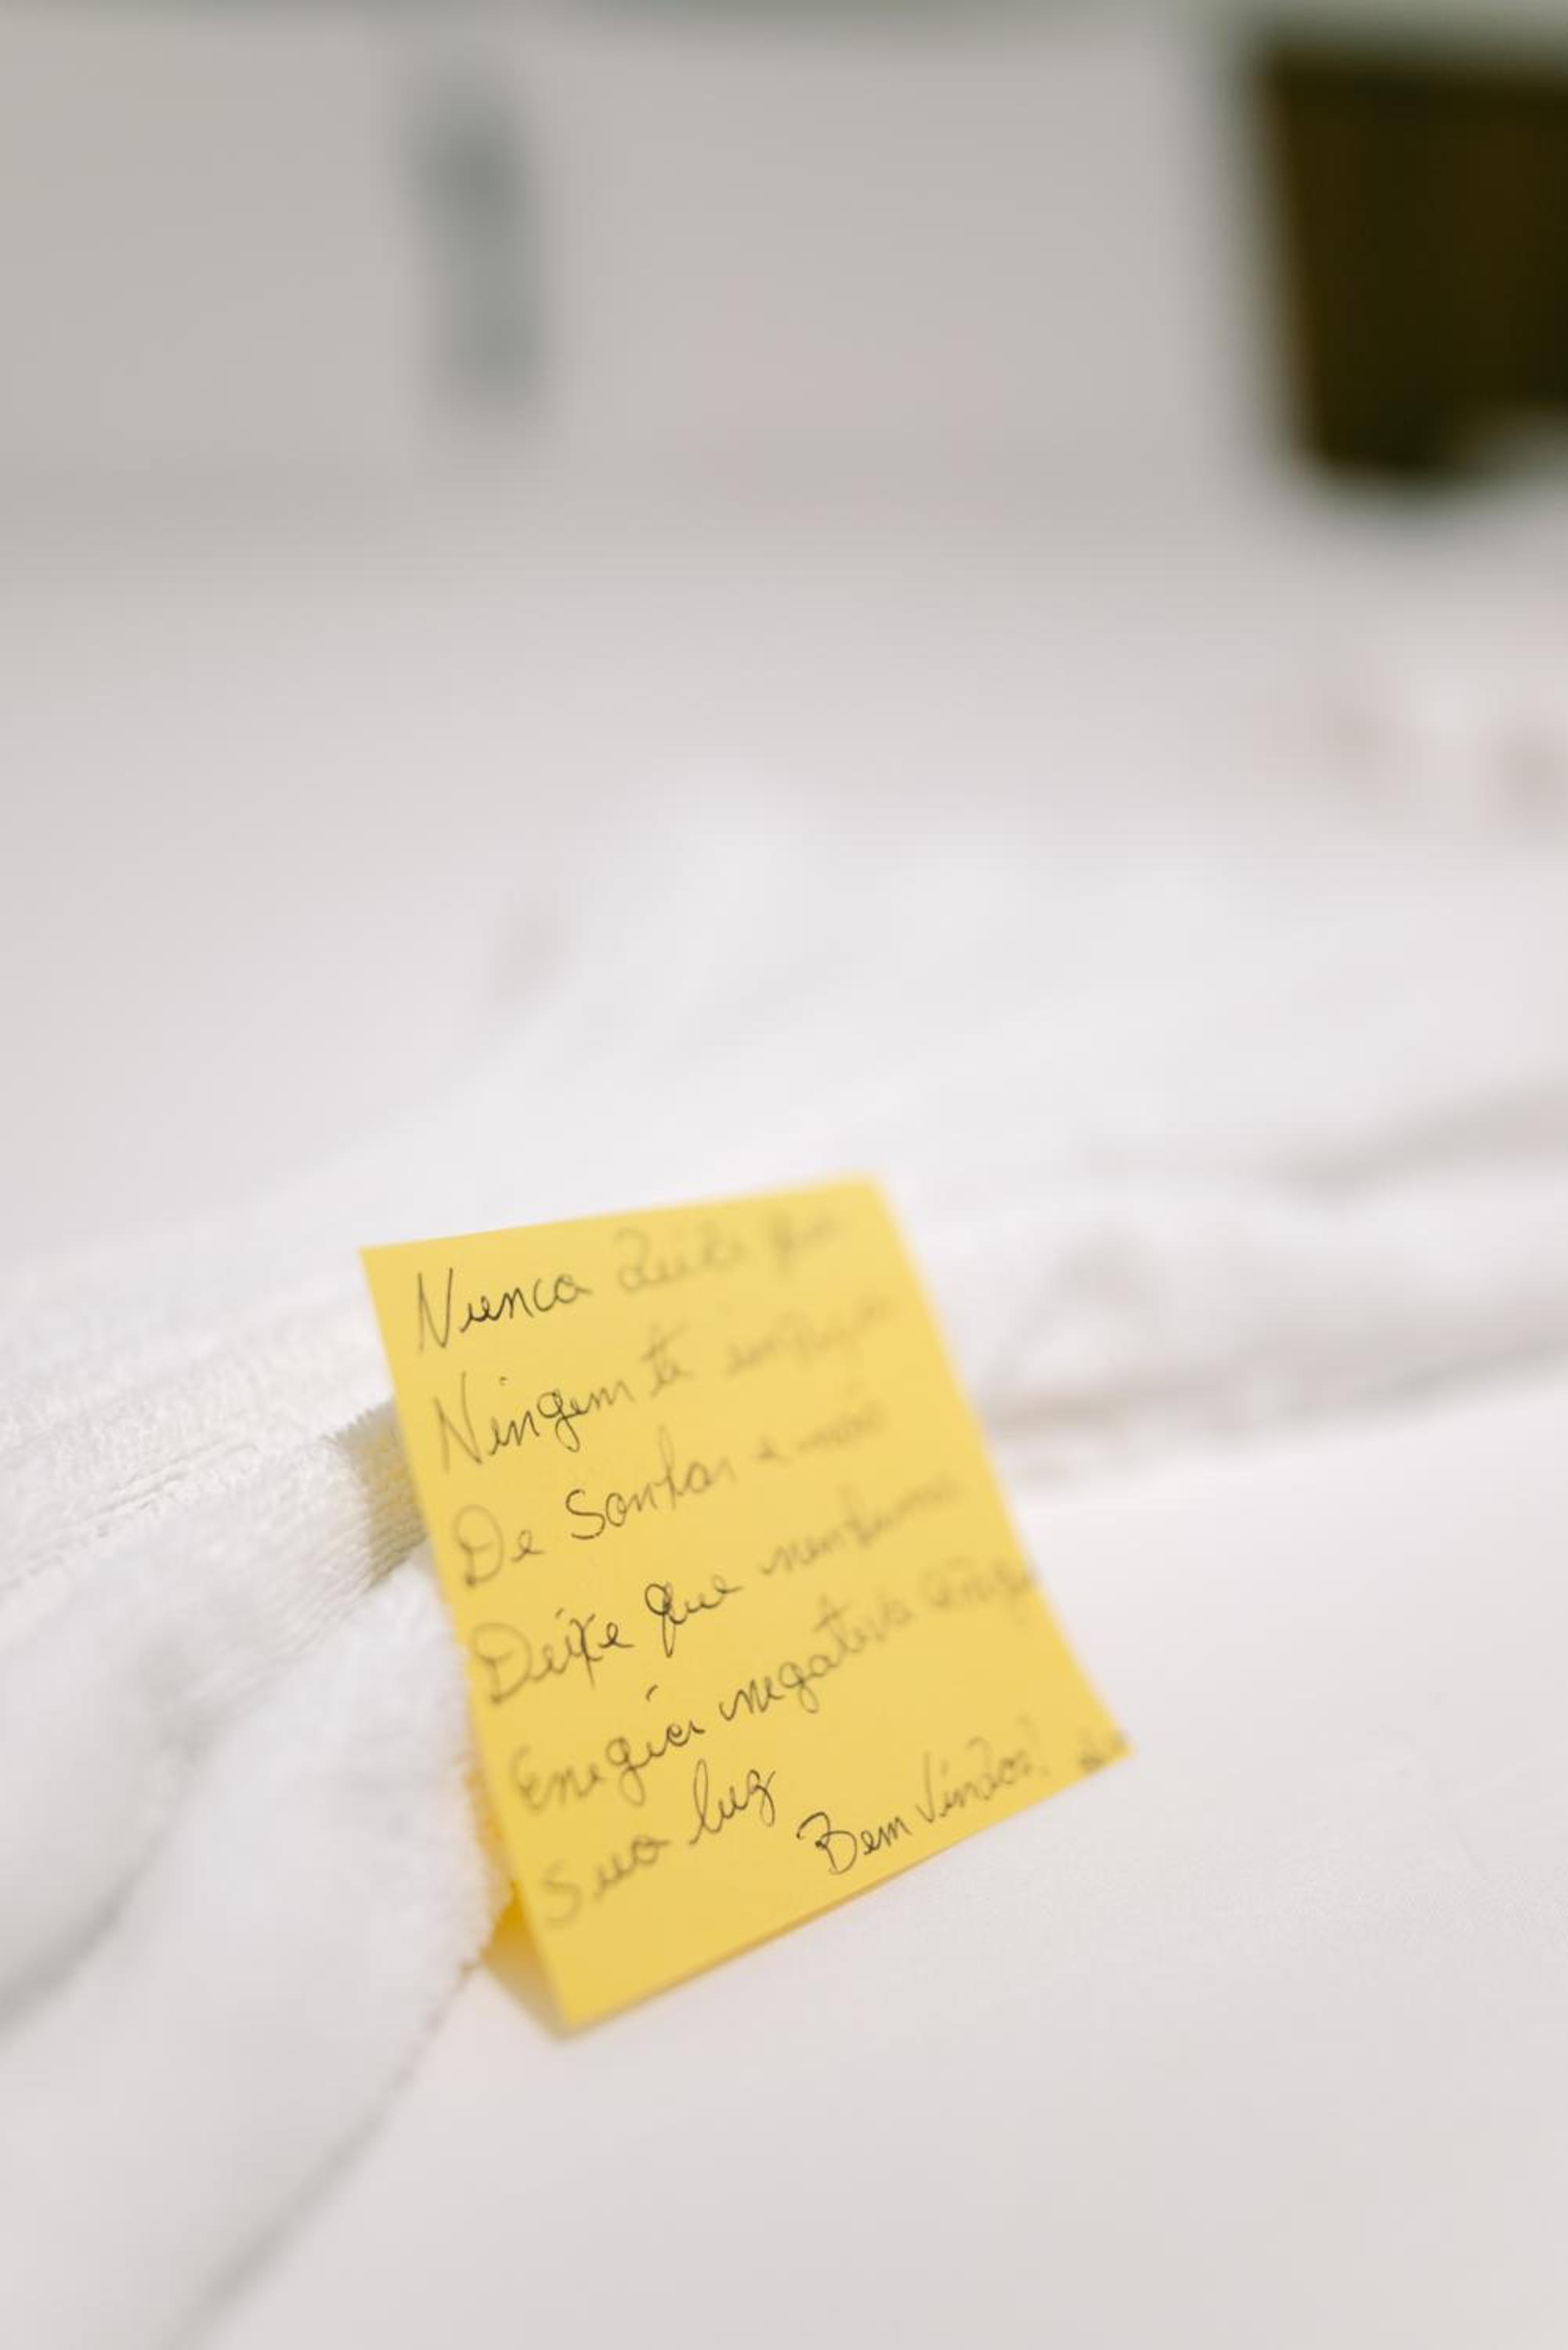 Nunca deixe que
Ningem te
De Sonhar e não
Deixe que nenhuma
Enegia negativa
Sua luz
Bem Vindos!